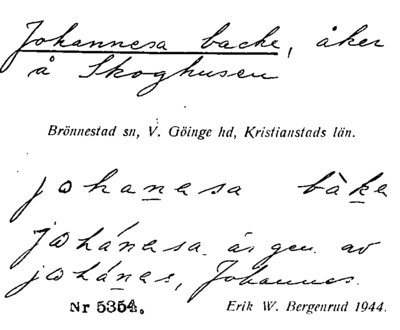 Johannesa backe, åker
å Skoghusen
Brönnestad sn, V. Göinge hd, Kristianstads län.
johanesa bàke
johánesa är gen. av
johánes, Johannes.
Nr 5354. Erik W. Bergenrud 1944.